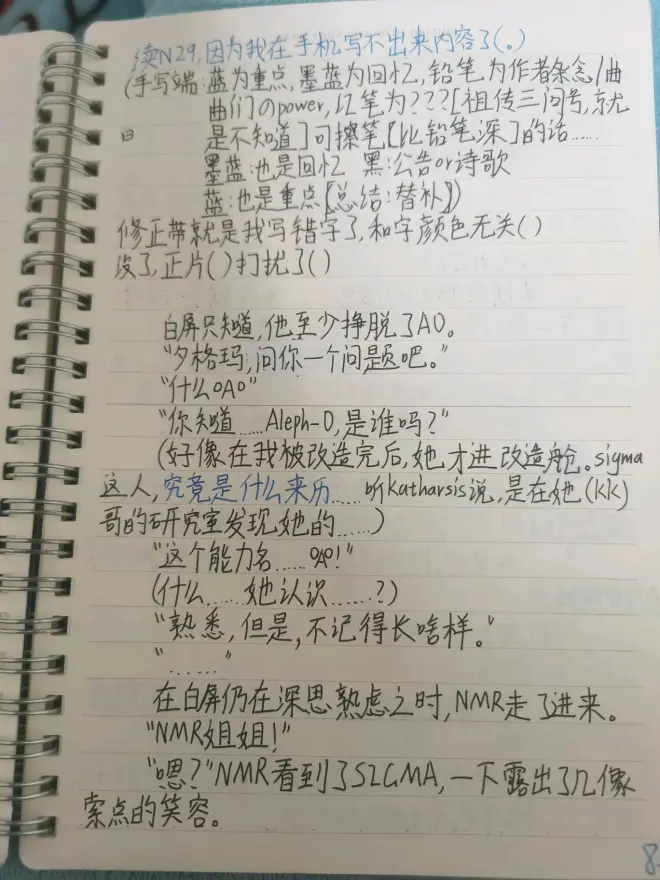 续N29,因为我在手机写不出来内容了(。)
(手写端:蓝为重点,墨蓝为回忆,铅笔为作者杂念/曲
曲们のpower,红笔为???[祖传三问号,就
是不知道]可擦笔[比铅笔深]的话……
墨蓝:也是回忆 黑:公告or诗歌
蓝:也是重点[总结:替补])
修正带就是我写错字了,和字颜色无关()
没了,正片()打扰了()
白屏只知道,他至少挣脱了A0。
"夕格玛,问你一个问题吧。"
"什么OAO"
"你知道……Aleph-0,是谁吗?"
(好像在我被改造完后,她才进改造舱。sigma
这人,究竟是什么来历……听Katharsis说,是在她(KK)
哥的研究室发现她的……)
"这个能力名……OAO!"
(什么……她认识……?)
"熟悉,但是,不记得长啥样。"
"……"
在白屏仍在深思熟虑之时,NMR走了进来。
"NMR姐姐!"
"嗯?"NMR看到了SIGMA,一下露出了几像
素点的笑容。
8